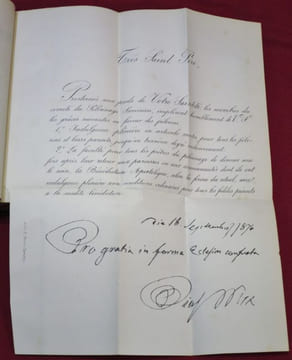 Très Saint Père,
Prosternés aux pieds de Votre Sainteté, les membres du
comité du Pèlerinage implorent humblement de V. S.
les grâces suivantes en faveur des pèlerins:
1.° Indulgence plénière in articulo mortis pour les pèle-
rins et leurs parents jusqu'au troisième degré inclusivement.
2.° La faculté pour tous les prêtres du pèlerinage de donner une
fois après leur retour aux paroisses ou aux communautés dont ils ont
le soin, la Bénédiction Apostolique, selon la forme du rituel, avec
indulgence plénière aux conditions ordinaires pour tous les fidèles présents
à la susdite bénédiction.
Die 16 Septembris 1876
Pro gratia in forma Ecclesiae consueta
Pius PP. IX